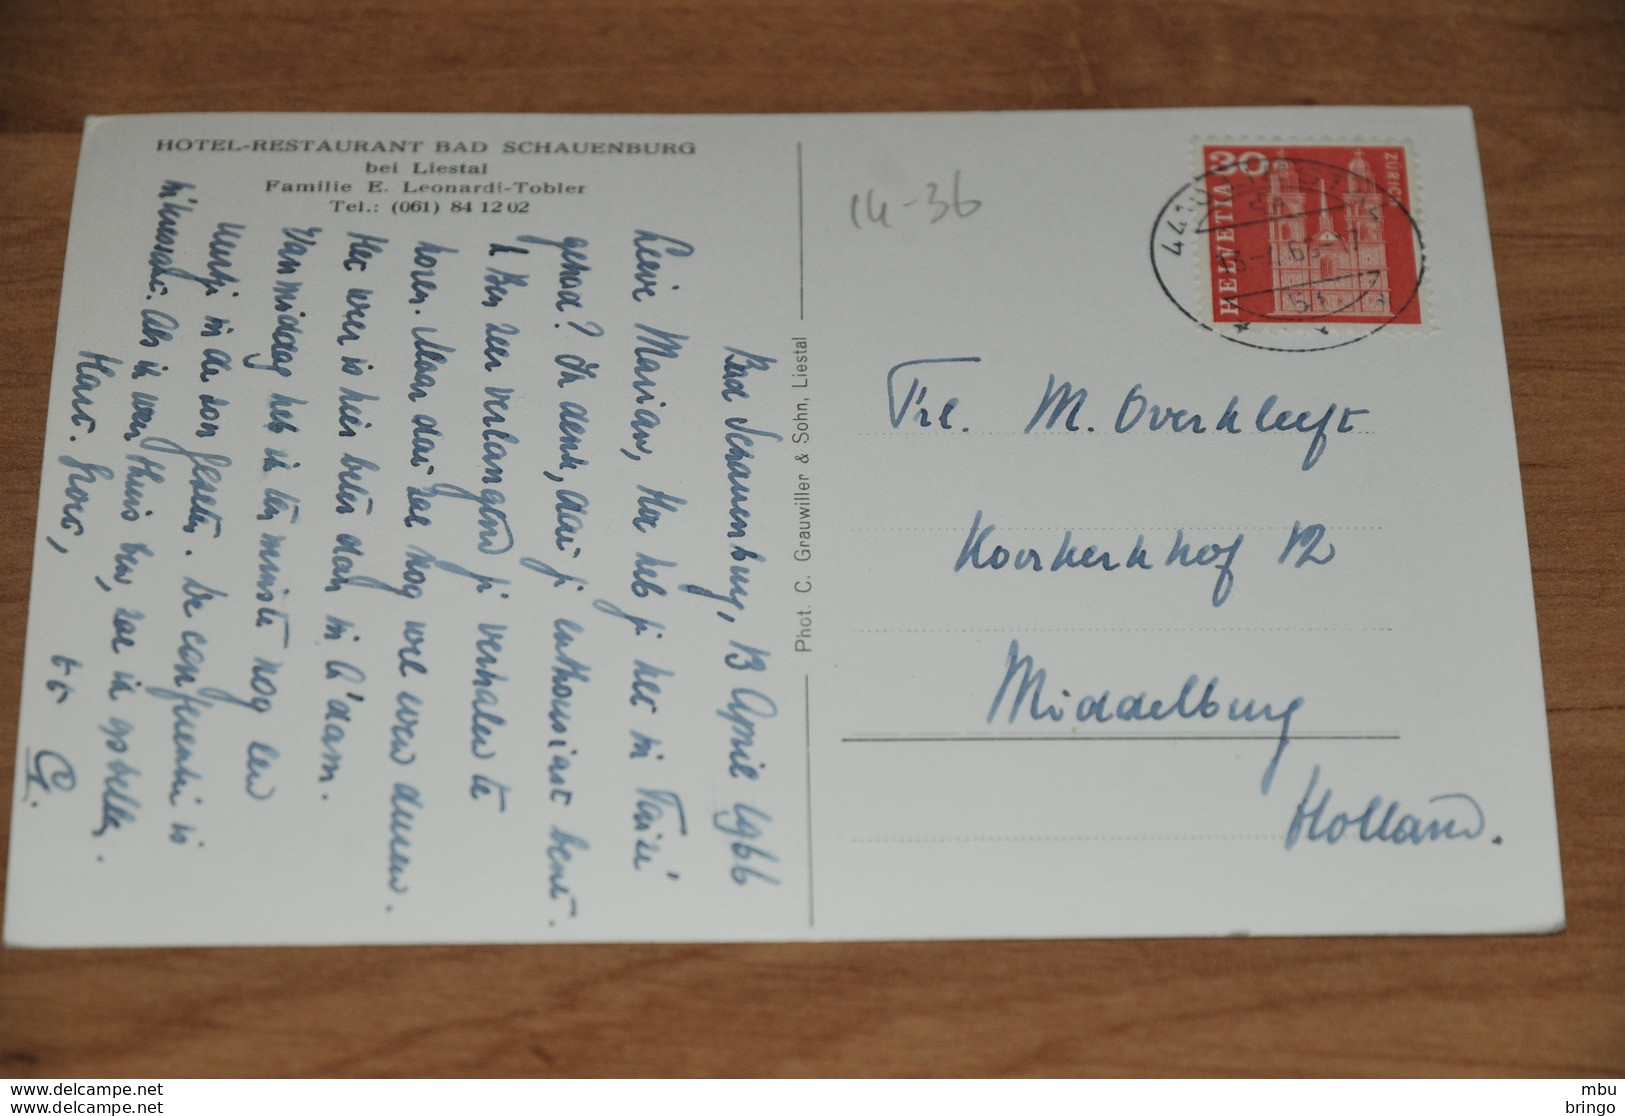 HOTEL-RESTAURANT BAD SCHAUENBURG
bei Liestal
Familie E. Leonardi-Tobler
Tel.: (061) 84 12 02
Bad Schauenburg, 13 April 1966
Lieve Marian, Hoe heb je het in Taizé
gehad? Ik denk, dat je enthousiast bent.
Ik ben zeer verlangend je verhalen te
horen. Maar dat zal nog wel even duren.
Het weer is hier beter dan in A'dam.
Vanmiddag heb ik ten minste nog een
uurtje in de zon gezeten. De conferentie is
interessant. Als ik weer thuis ben, zal ik opbellen.
Hart. groet,
tt
G.
Phot. C. Grauwiller & Sohn, Liestal
14-36
HELVETIA 30
ZÜRICH
Frl. M. Overkleeft
Koorkerkhof 12
Middelburg
Holland.
delcampe.net
delcampe.net
mbu
bringo